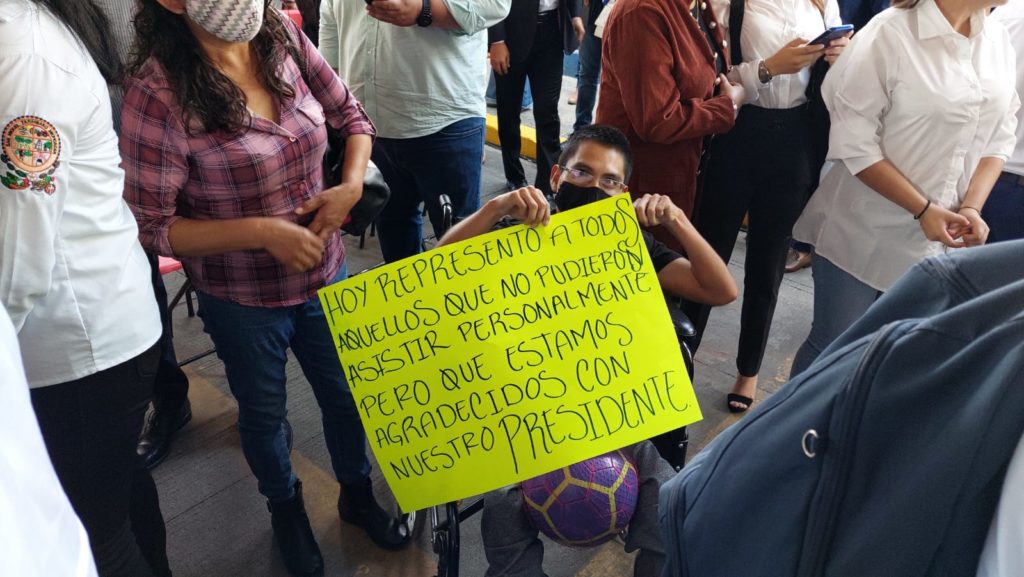 HOY REPRESENTO A TODOS
AQUELLOS QUE NO PUDIERON
ASISTIR PERSONALMENTE
PERO QUE ESTAMOS
AGRADECIDOS CON
NUESTRO PRESIDENTE